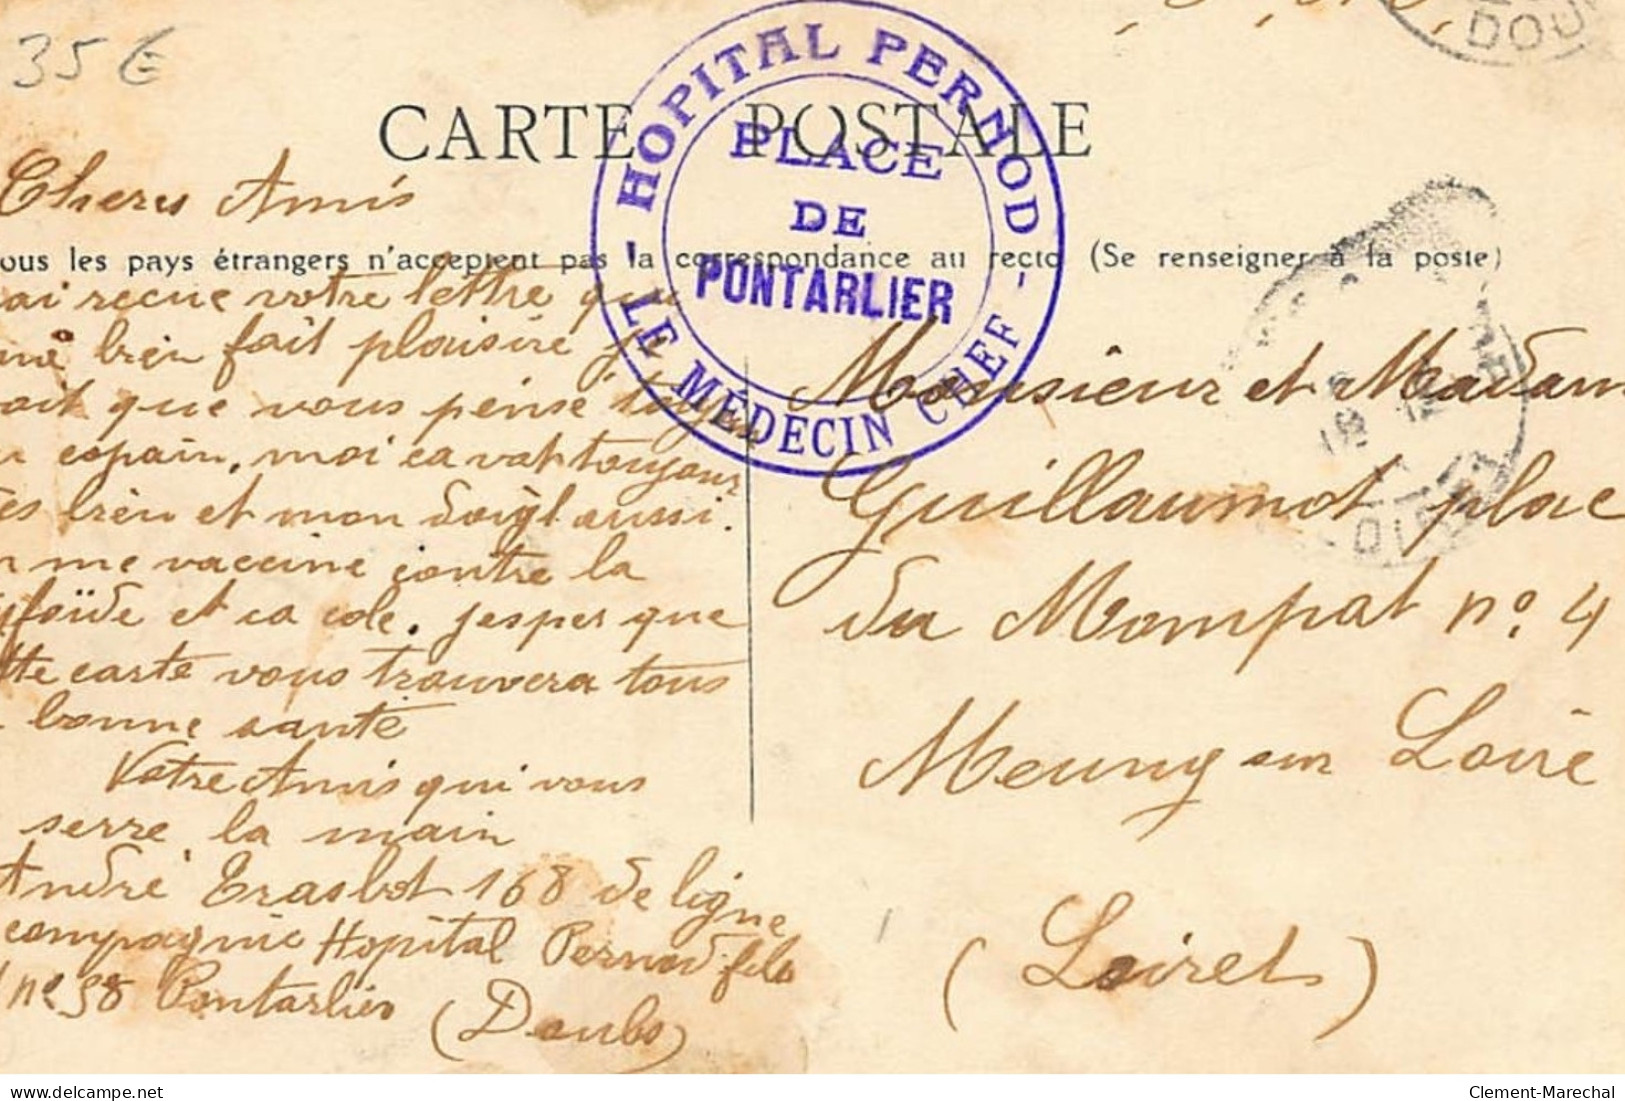 35 €
DOU
HOPITAL PERNOD
PLACE
DE
PONTARLIER
- LE MÉDECIN CHEF -
CARTE POSTALE
Chers Amis
ous les pays étrangers n'acceptent pas la correspondance au recto (Se renseigner à la poste)
ai recue votre lettre qu
me bien fait plaisire je
oit que vous pense
copain, moi ca vat toujour
es bien et mon doigt aussi.
me vaccine contre la
foïde et ca cole. jesper que
tte carte vous trouvera tous
bonne santé
Votre Amis qui vous
serre la main
André Erasbot 168 de ligne
compagnie Hopital Pernod fils
no 58 Pontarlier (Doubs)
Monsieur et Madam
Guillaumot plac
du Mompat no. 4
Meung sur Loire
(Loiret)
delcampe.net
Clement-Marechal